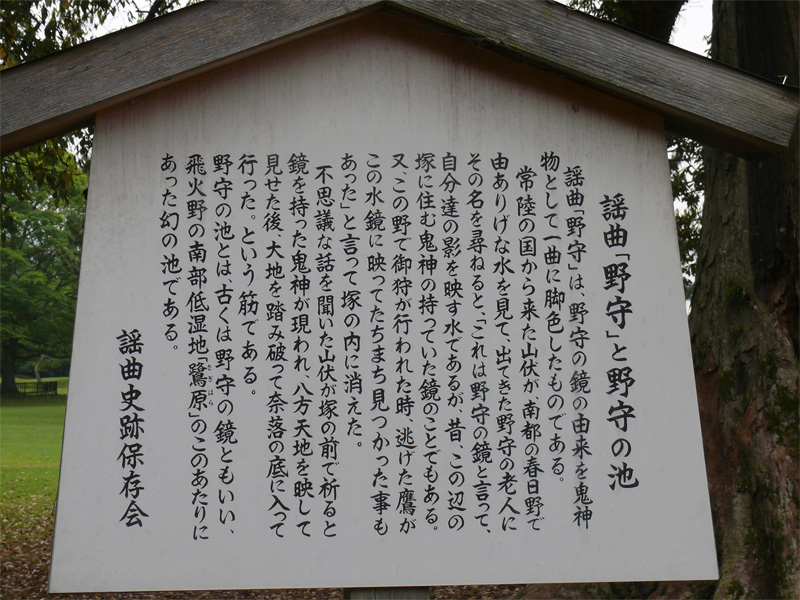 謡曲「野守」と野守の池
謡曲「野守」は、野守の鏡の由来を鬼神
物として一曲に脚色したものである。
常陸の国から来た山伏が、南都の春日野で
由ありげな水を見て、出てきた野守の老人に
その名を尋ねると、「これは野守の鏡と言って、
自分達の影を映す水であるが、昔、この辺の
塚に住む鬼神の持っていた鏡のことでもある。
又、この野で御狩が行われた時、逃げた鷹が
この水鏡に映ってたちまち見つかった事も
あった」と言って塚の内に消えた。
不思議な話を聞いた山伏が塚の前で祈ると
鏡を持った鬼神が現われ、八方天地を映して
見せた後、大地を踏み破って奈落の底に入って
行った。という筋である。
野守の池とは古くは野守の鏡ともいい、
飛火野の南部低湿地「鷺原」のこのあたりに
さぎはら
あった幻の池である。
謡曲史跡保存会